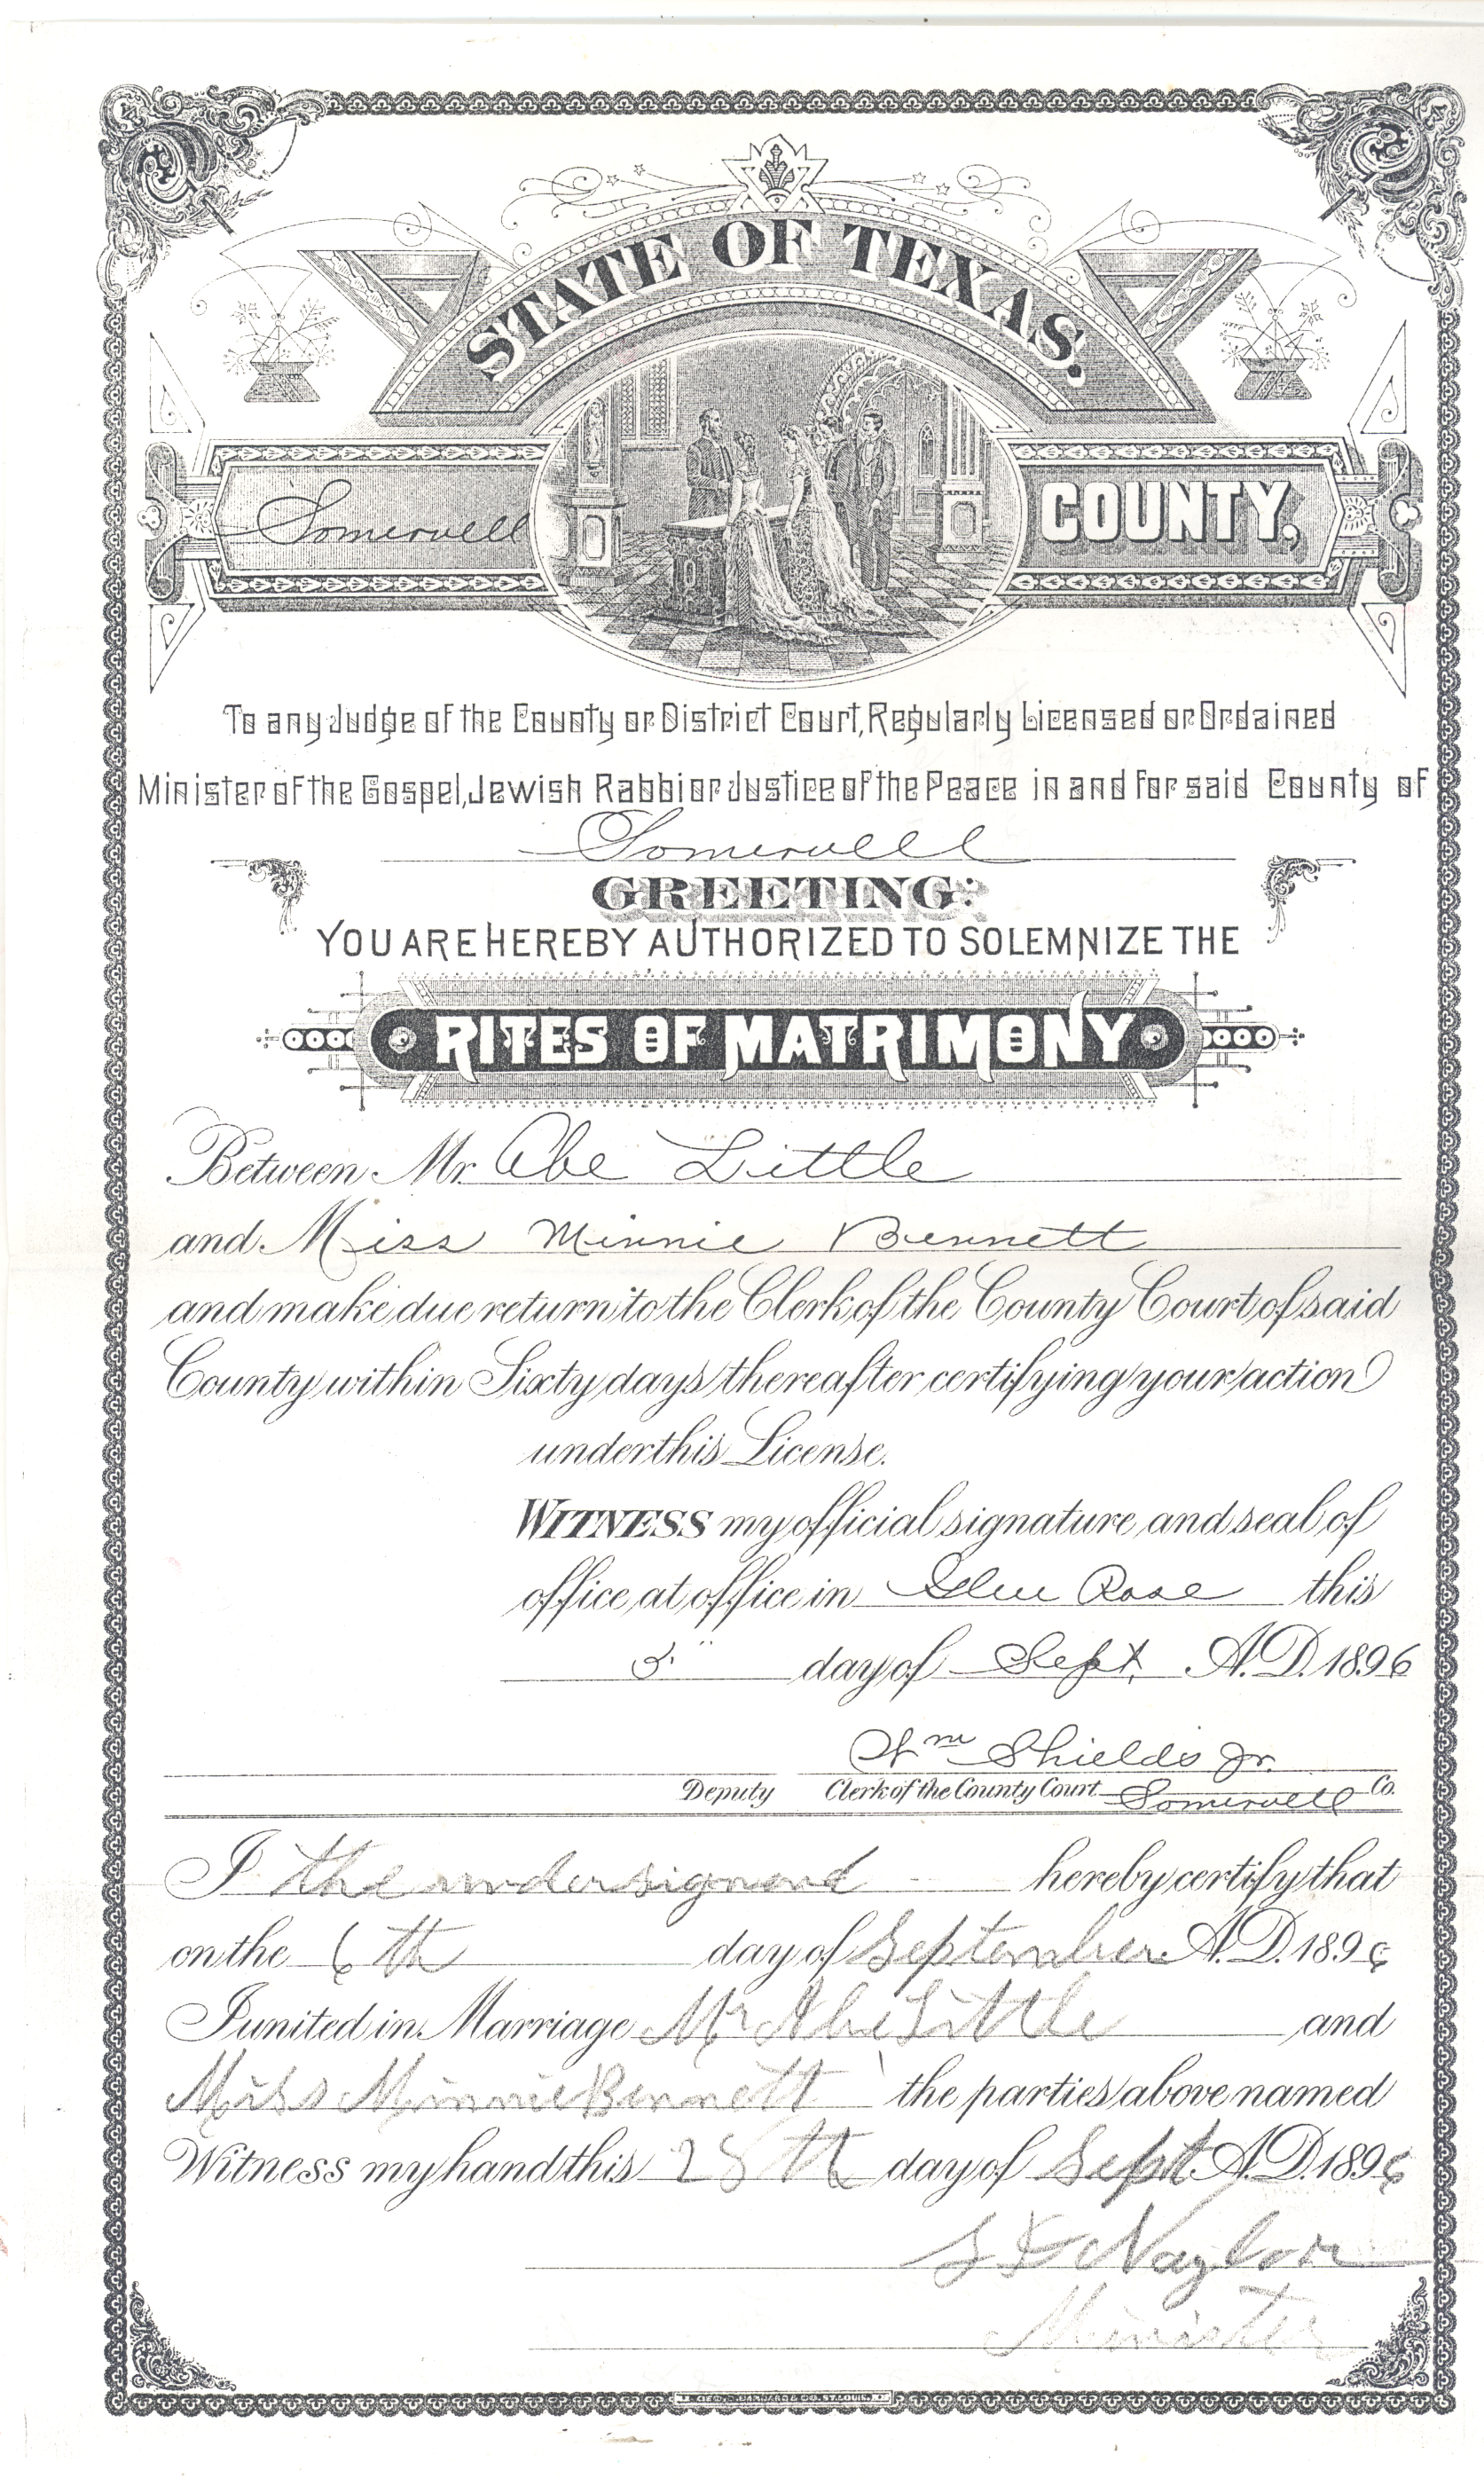 STATE OF TEXAS,
Somervell COUNTY,
To any Judge of the County or District Court, Regularly Licensed or Ordained
Minister of the Gospel, Jewish Rabbi or Justice of the Peace in and for said County of
Somervell
GREETING:
YOU ARE HEREBY AUTHORIZED TO SOLEMNIZE THE
RITES OF MATRIMONY
Between Mr. Abe Little
and Miss Minnie Bennett
and make due return to the Clerk of the County Court of said
County within Sixty days thereafter certifying your action
under this License.
WITNESS my official signature and seal of
office at office in Glen Rose this
day of Sept. A.D. 1896
Wm Shields Jr.
Deputy Clerk of the County Court Somervell Co.
I the undersigned hereby certify that
on the 6th day of September A.D. 1896
I united in Marriage Mr Abe Little and
Miss Minnie Bennett the parties above named
Witness my hand this 28th day of Sept A.D. 1896
Naylor
Minister